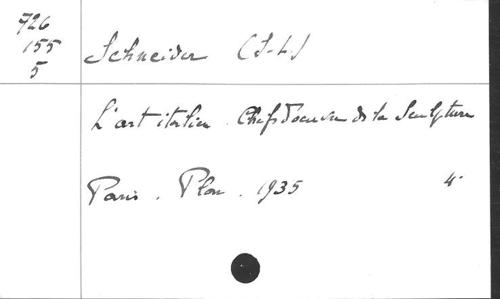 726
155
5
Schneider (S-L)
L'art italien. Chefs d'oeuvre de la Sculpture
Paris. Plon. 1935 4°